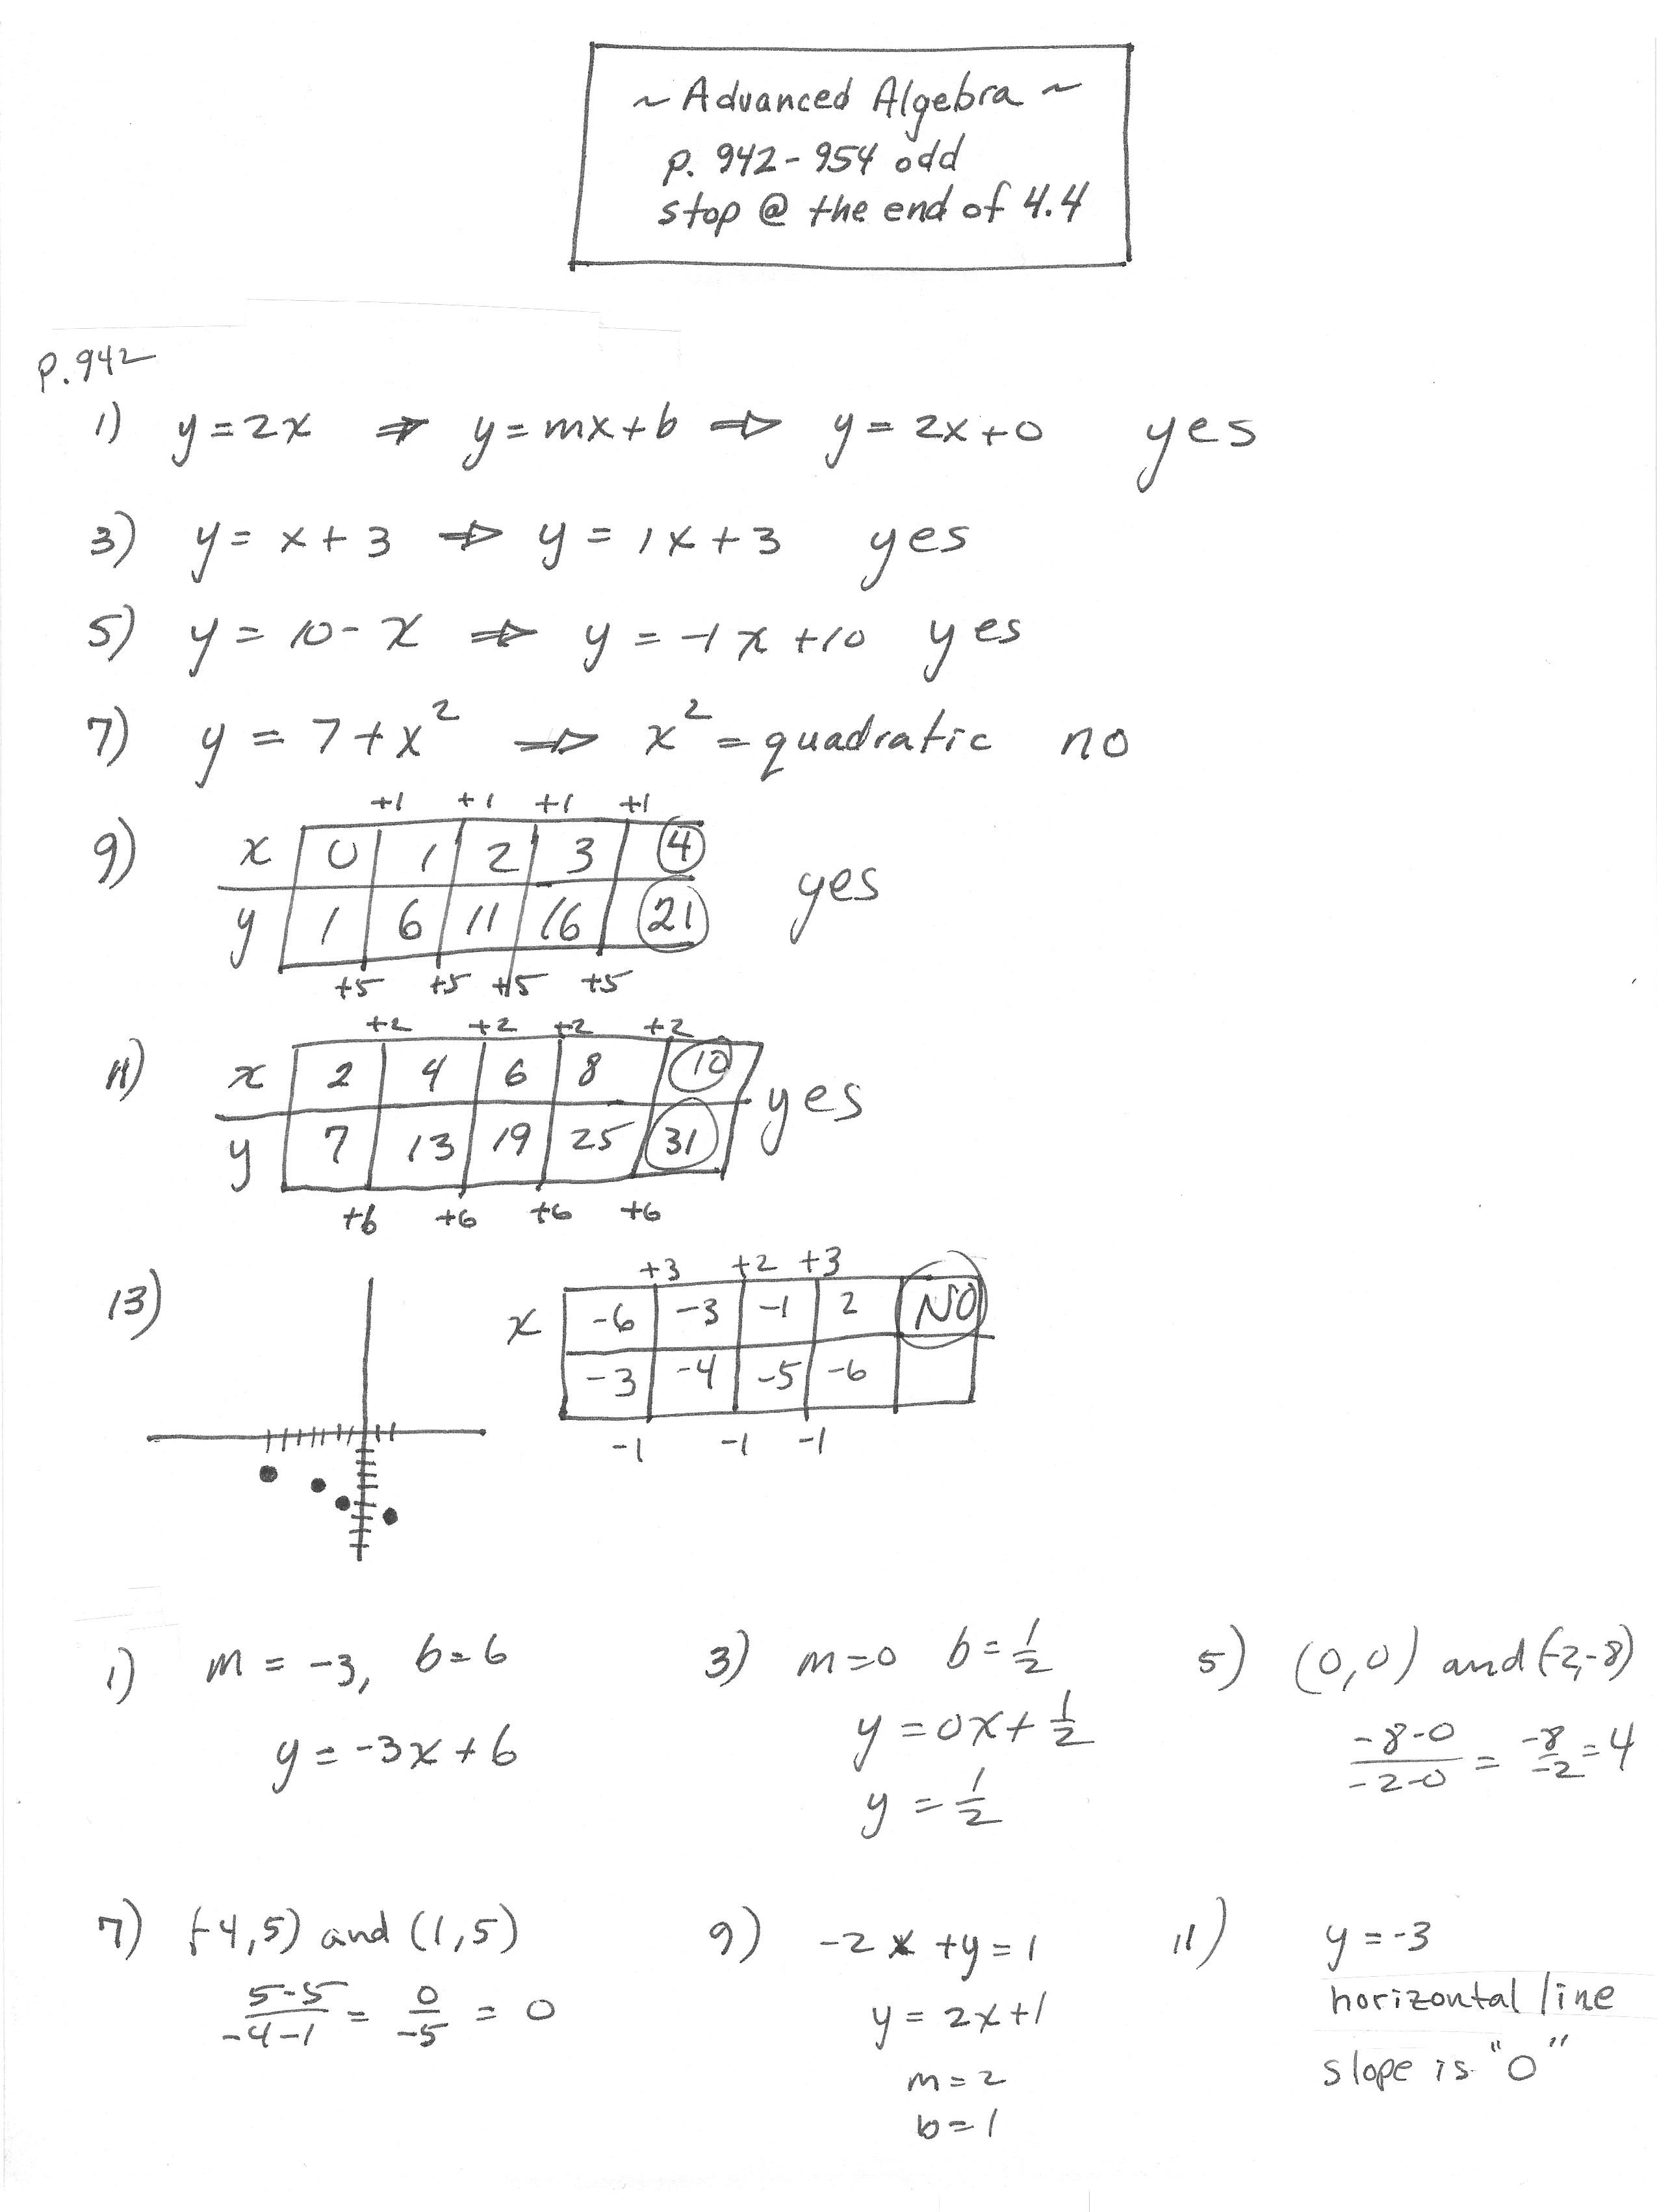 ~ Advanced Algebra ~
p. 942-954 odd
stop @ the end of 4.4
p.942
1) y=2x ⇒ y=mx+b ⇒ y=2x+0 yes
3) y=x+3 ⇒ y=1x+3 yes
5) y=10-x ⇒ y=-1x+10 yes
7) y=7+x² ⇒ x²=quadratic no
+1 +1 +1 +1
9) x 0 1 2 3 4 yes
y 1 6 11 16 21
+5 +5 +5 +5
+2 +2 +2 +2
11) x 2 4 6 8 10 yes
y 7 13 19 25 31
+6 +6 +6 +6
+3 +2 +3
13) x -6 -3 -1 2 NO
-3 -4 -5 -6
-1 -1 -1
1) m=-3, b=6
y=-3x+6
3) m=0 b=1/2
y=0x+1/2
y=1/2
5) (0,0) and (-2,-8)
-8-0/-2-0 = -8/-2 = 4
7) (-4,5) and (1,5)
5-5/-4-1 = 0/-5 = 0
9) -2x+y=1
y=2x+1
m=2
b=1
11) y=-3
horizontal line
slope is "0"